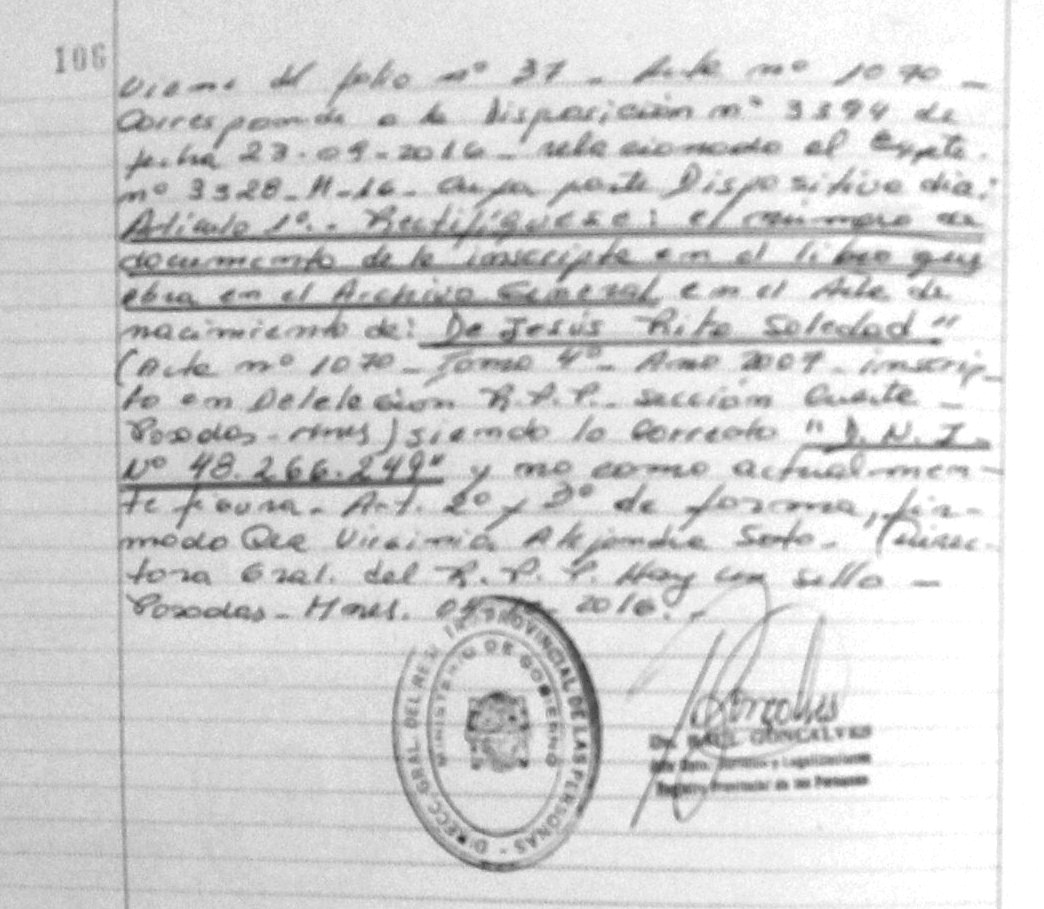 106
Viene del folio nº 37 - Acta nº 1070 -
Corresponde a la Disposición nº 3394 de
fecha 23-09-2016 - relacionado al Expte.
nº 3328-H-16 - Cuya parte Dispositiva dia:
Artículo 1º.- Rectifíquese: el número de
documento de la inscripta en el libro que
obra en el Archivo General en el Acta de
nacimiento de: De Jesús Rita Soledad"
(Acta nº 1070 - Tomo 4º - Ano 2007 - inscrip-
to en Delelecion R.P.P. sección Cuarta -
Posadas - Mnes) siendo lo correcto "D.N.I.
Nº 48.266.249" y no como actualmen-
te figura. Art. 2º y 3º de forma, fir-
mado Dra Virginia Alejandra Soto. (Direc-
tora Gral. del R.P.P. Hay un sello -
Posadas - Mnes. 2016.-
DIRECC. GRAL. DEL REG PROVINCIAL DE LAS PERSONAS -
MINISTERIO DE GOBIERNO
Dr. RAUL GONCALVES
Registro Provincial de las Personas